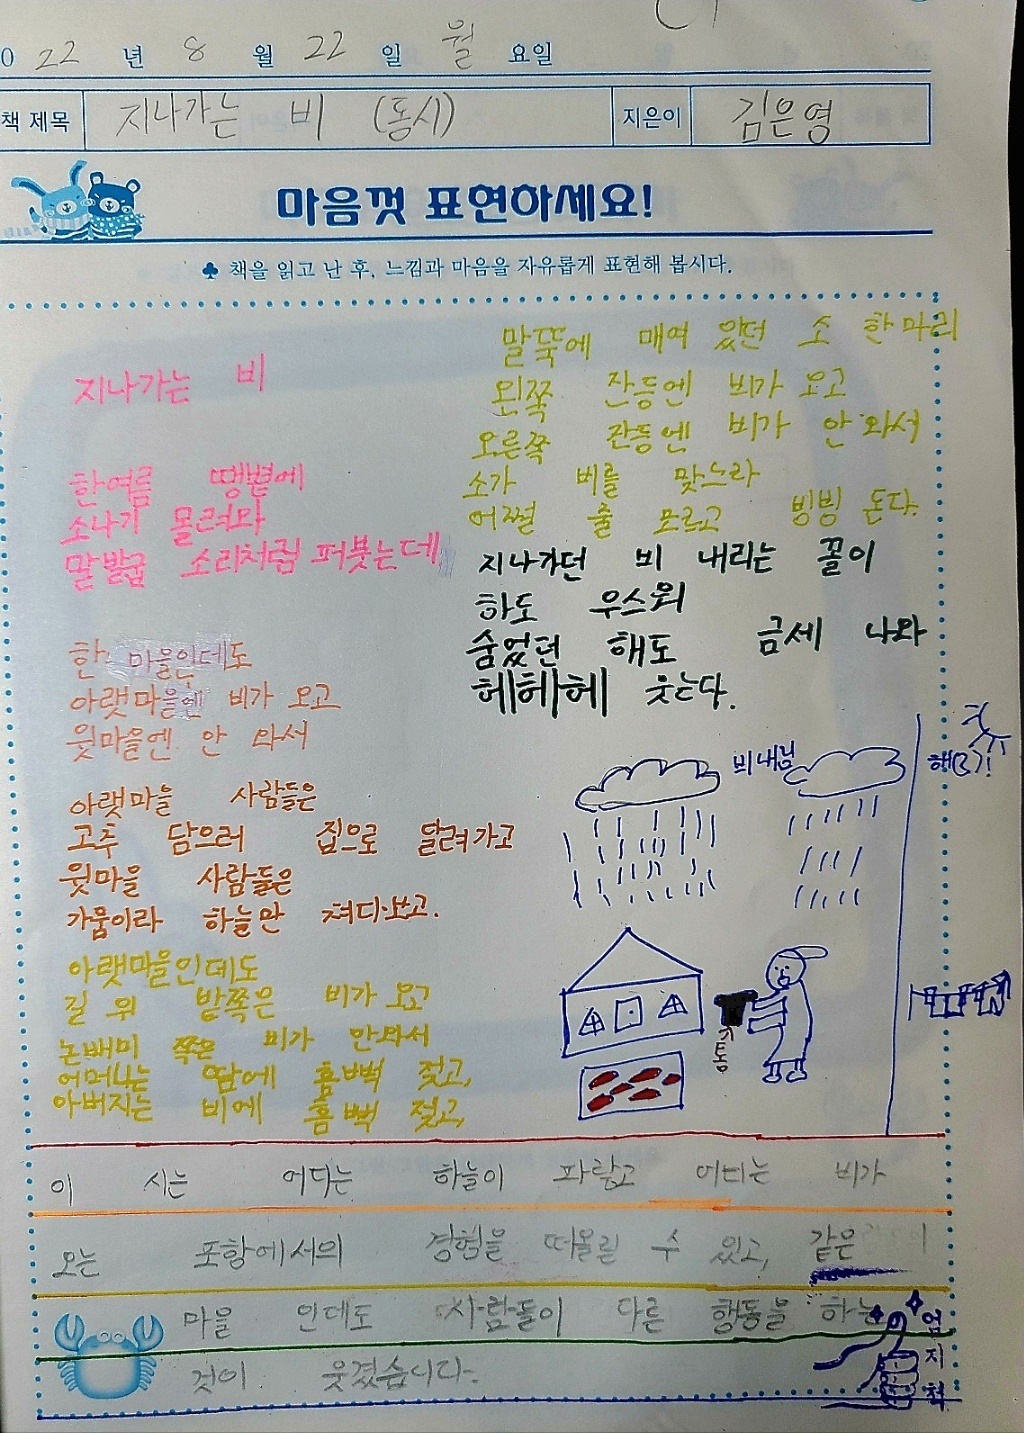 2022 년 8 월 22 일 월 요일
책 제목 지나가는 비 (동시) 지은이 김은영
마음껏 표현하세요!
♣ 책을 읽고 난 후, 느낌과 마음을 자유롭게 표현해 봅시다.
지나가는 비
한여름 땡볕에
소나기 몰려와
말발굽 소리처럼 퍼붓는데
한 마을인데도
아랫마을엔 비가 오고
윗마을엔 안 와서
아랫마을 사람들은
고추 담으러 집으로 달려가고
윗마을 사람들은
가뭄이라 하늘만 쳐다보고.
아랫마을인데도
길 위 밭쪽은 비가 오고
논배미 쪽은 비가 안와서
어머니는 땀에 흠뻑 젖고,
아버지는 비에 흠뻑 젖고,
말뚝에 매여 있던 소 한마리
왼쪽 잔등엔 비가 오고
오른쪽 잔등엔 비가 안 와서
소가 비를 맞느라
어쩔 줄 모르고 빙빙 돈다.
지나가던 비 내리는 꼴이
하도 우스워
숨었던 해도 금세 나와
헤헤헤 웃는다.
비내님
해
통
이 시는 어디는 하늘이 파랗고 어디는 비가
오는 포항에서의 경험을 떠올릴 수 있고, 같은
마을 인데도 사람들이 다른 행동을 하는
것이 웃겼습니다.
엄
지
척